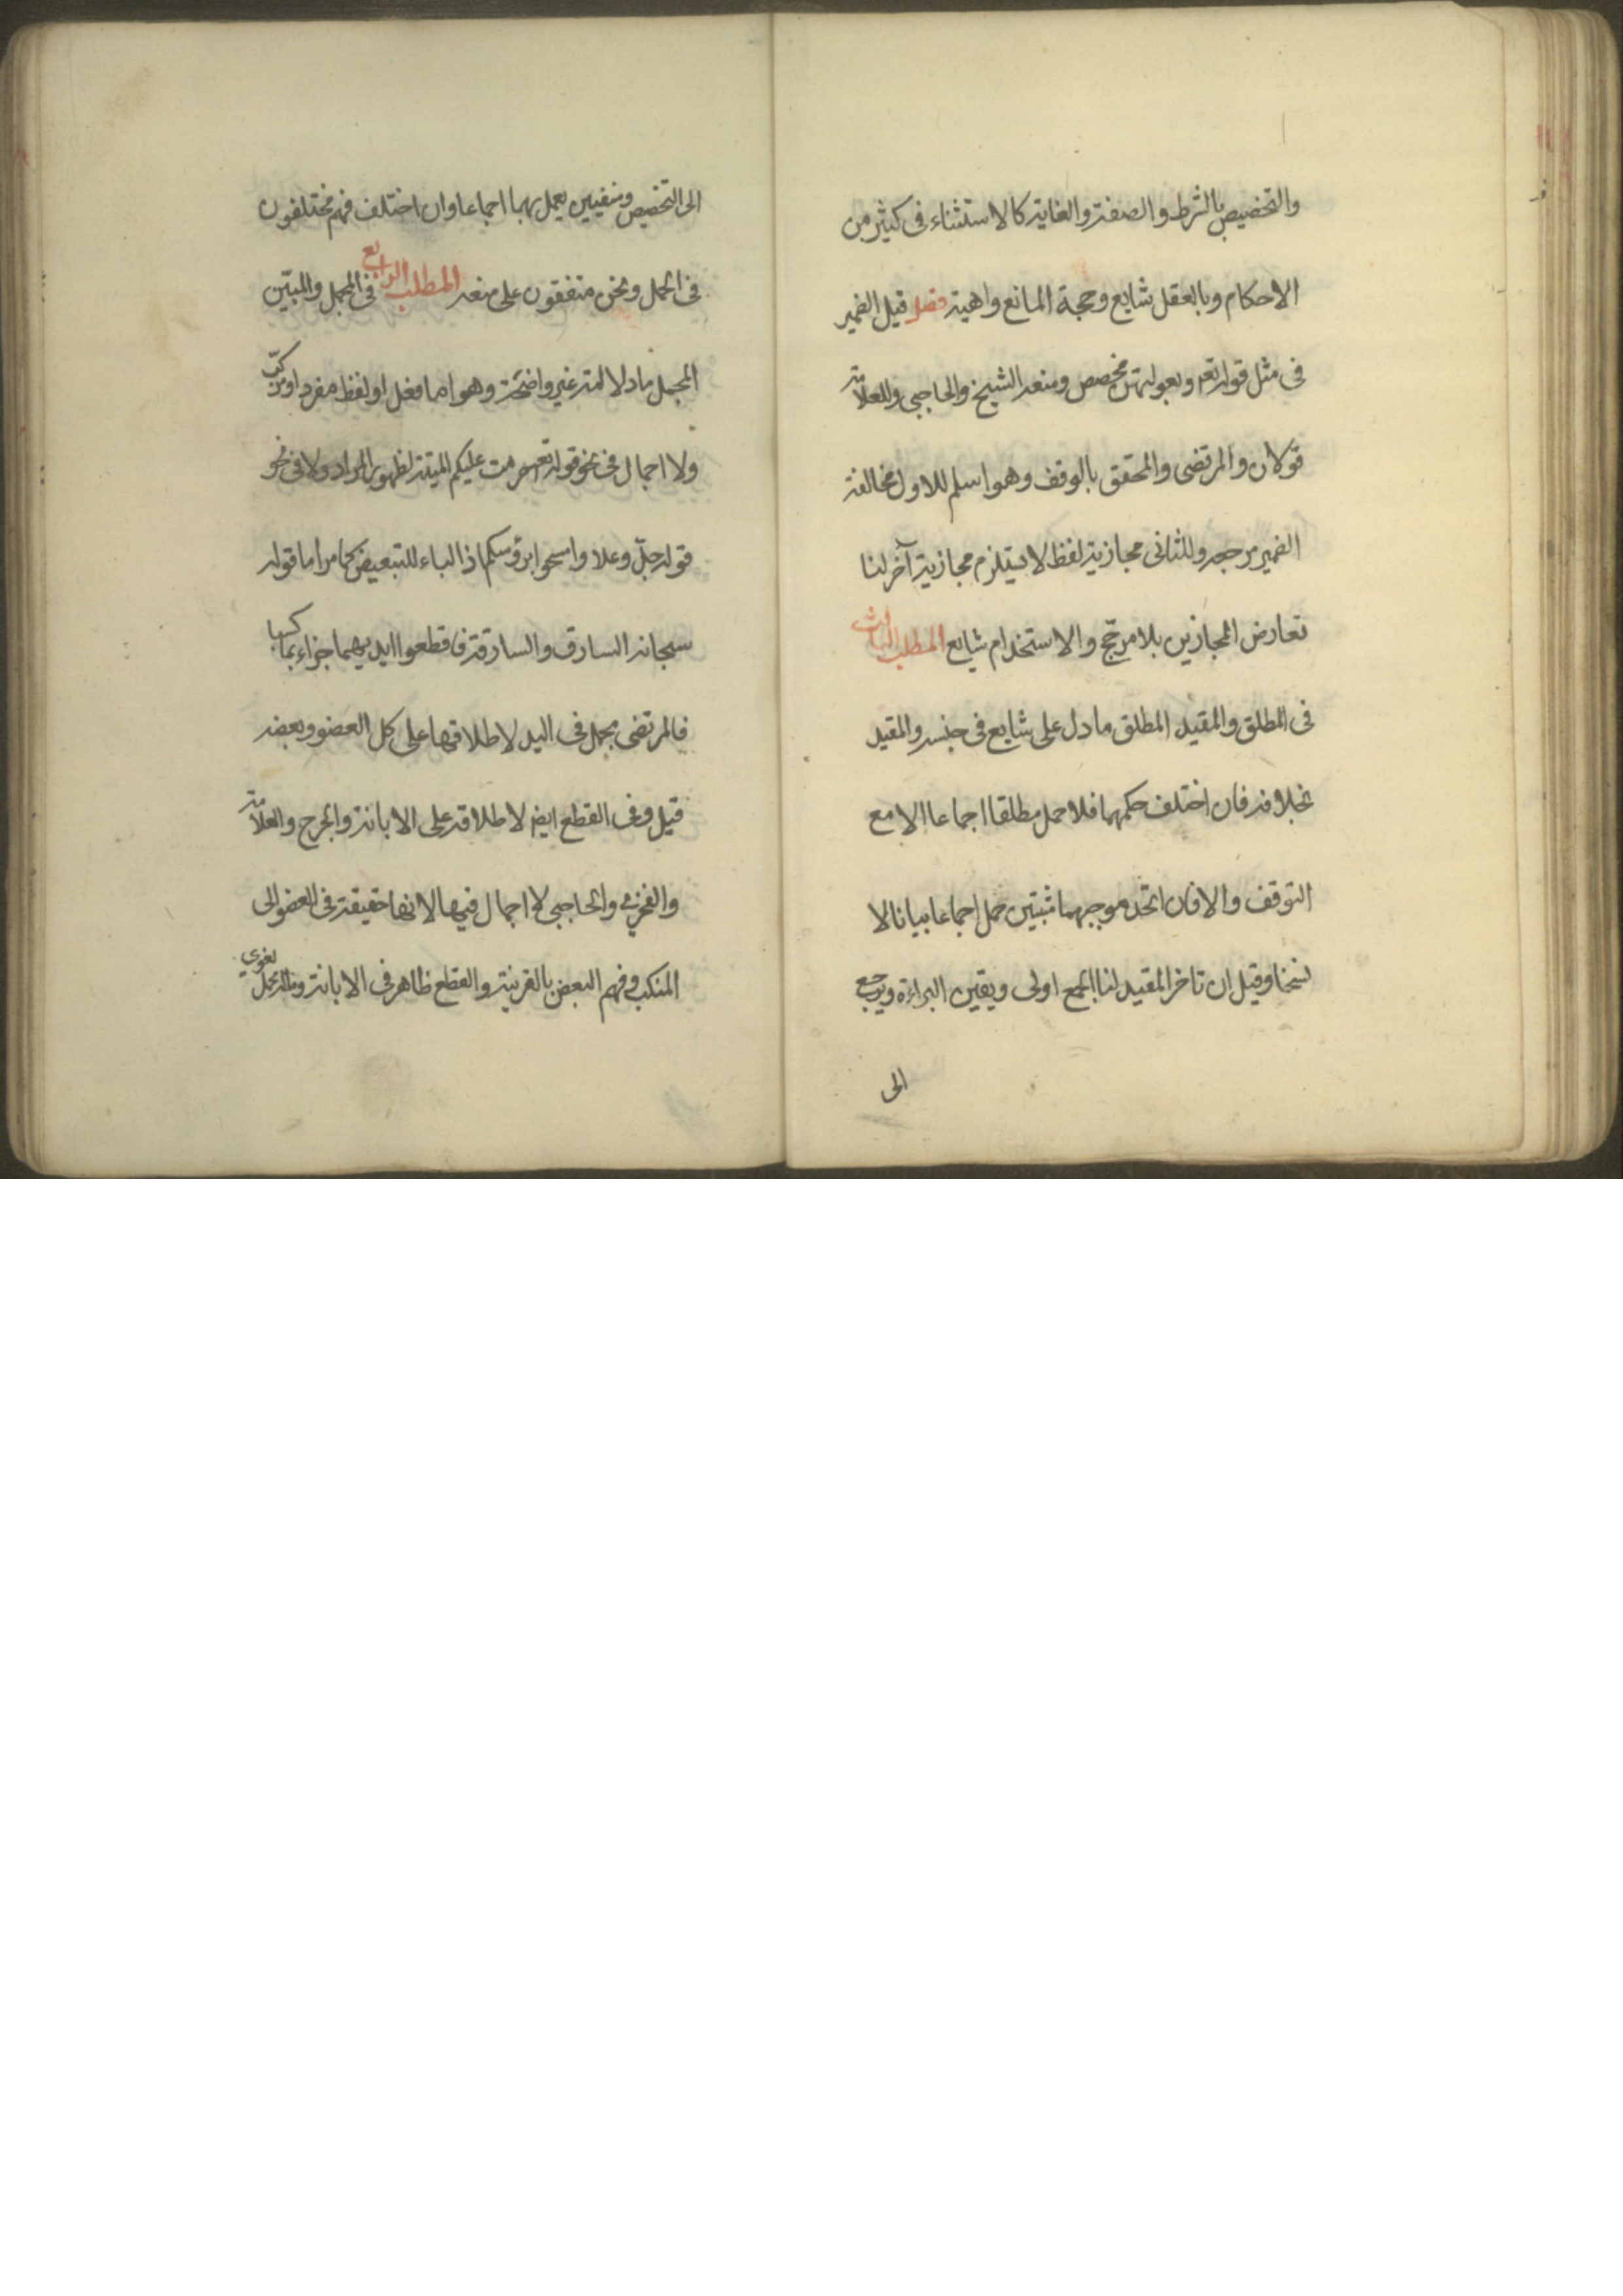 والتخصيص بالشرط والصفة والغاية كالاستثناء فى كثير من
الاحكام وبالعقل شايع وحجة المانع واهية فصل قيل الضمير
فى مثل قوله تعم وبعولتهن مخصص ومنعه الشيخ والحاجبى وللعلامة
قولان والمرتضى والمحقق بالوقف وهو اسلم للاول مخالفة
الضمير مرجعه وللثانى مجازية لفظ لا يستلزم مجازية آخر لنا
تعارض المجازين بلا مرجح والاستخدام شايع المطلب الثالث
فى المطلق والمقيد المطلق ما دل على شايع فى جنسه والمقيد
بخلافه فان اختلف حكمهما فلا حمل مطلقا اجماعا الا مع
التوقف والا فان اتحد موجبهما مثبتين حمل اجماعا بيانا لا
نسخا وقيل ان تاخر المقيد لنا الجمع اولى ويقين البراءة ويرجع
الى
الى التخصيص ومنفيين يعمل بهما اجماعا وان اختلف فهم مختلفون
فى الحمل ونحن متفقون على منعه المطلب الرابع فى المجمل والمبيّن
المجمل ما دلالته غير واضحة وهو اما فعل او لفظ مفرد او مركّب
ولا اجمال فى نحو قوله تعم حرمت عليكم الميتة لظهور المراد ولا فى نحو
قوله جلّ وعلا وامسحوا برؤسكم اذ الباء للتبعيض كما مر اما قوله
سبحانه السارق والسارقة فاقطعوا ايديهما جزاء بما كسبا
فالمرتضى مجمل فى اليد لاطلاقها على كل العضو وبعضه
قيل وفى القطع ايضا لاطلاقه على الابانة والجرح والعلامة
والفخرى والحاجبى لا اجمال فيها لانها حقيقة فى العضو الى
المنكب وفهم البعض بالقرينة والقطع ظاهر فى الابانة وماله محمل لغوى